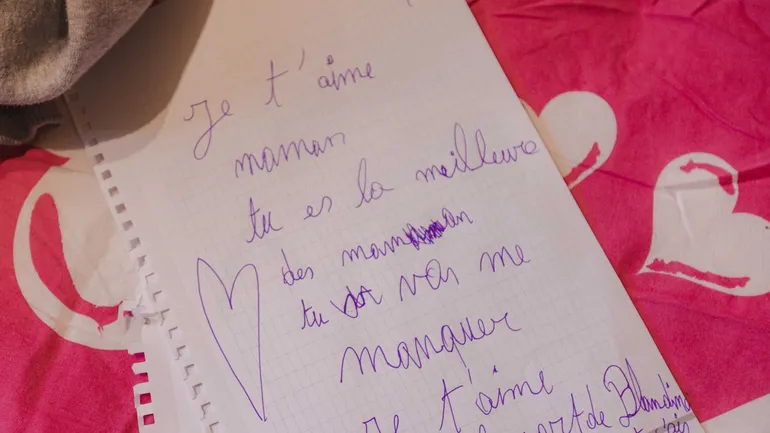 Je t'aime
maman
tu es la meilleure
des maman
tu vas me
manquer
Je t'aime
de Blandin